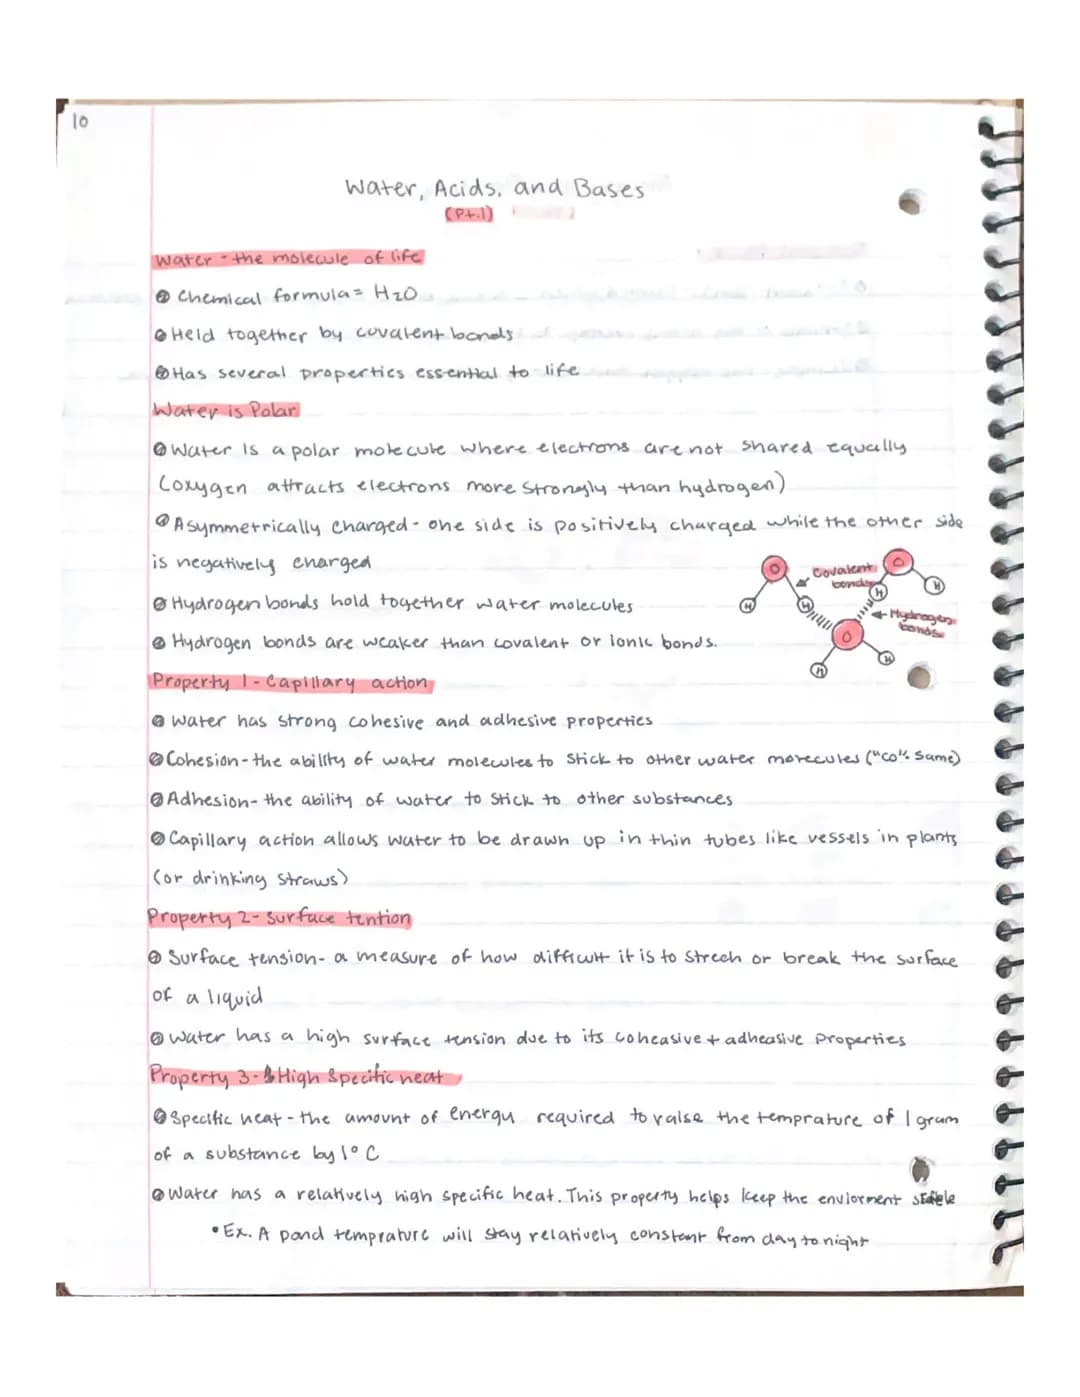 10
Water, Acids, and Bases
(Pt.1)
Water - the molecule of life
Chemical formula = H2O
Held together by covalent bonds
Has several properties essential to life
Water is Polar
Water is a polar molecule where electrons are not shared equally
(oxygen attracts electrons more strongly than hydrogen)
Asymmetrically charged - one side is positively charged while the other side
is negatively charged
Hydrogen bonds hold together water molecules
Hydrogen bonds are weaker than covalent or ionic bonds.
O
Covalent
bonds
O
H
H
H
H
Hydrogen
bonds
O
H
H
Property 1 - Capillary action
Water has strong cohesive and adhesive properties
Cohesion - the ability of water molecules to stick to other water molecules ("co": same)
Adhesion - the ability of water to stick to other substances
Capillary action allows water to be drawn up in thin tubes like vessels in plants
(or drinking straws)
Property 2 - Surface tention
Surface tension - a measure of how difficult it is to strech or break the surface
of a liquid
Water has a high surface tension due to its coheasive + adheasive properties
Property 3 - High Specific heat
Specific heat - the amount of energy required to raise the temprature of 1 gram
of a substance by 1° C
Water has a relatively high specific heat. This property helps keep the enviorment stable
• Ex. A pond temprature will stay relatively constant from day to night